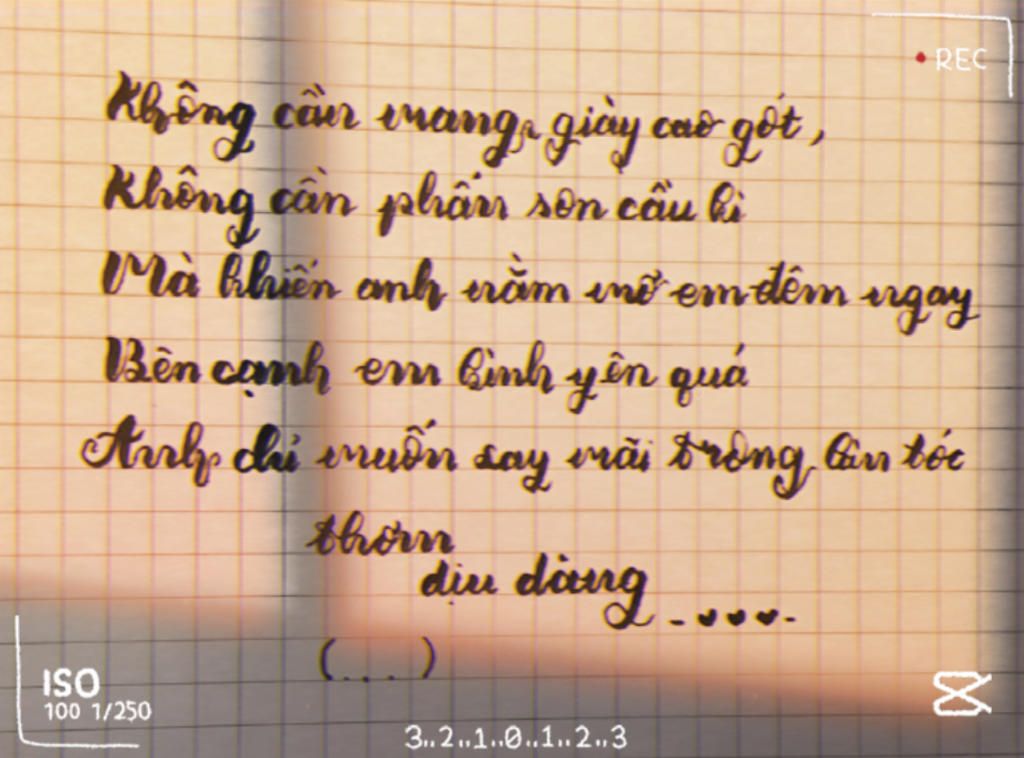 REC
Không cần mang giày cao gót,
Không cần phấn son cầu kì
Mà khiến anh nằm mơ em đêm ngay
Bên cạnh em bình yên quá
Anh chỉ muốn say mãi trong làn tóc
thơm
dịu dàng - ♥♥♥-
(...)
ISO
100 1/250
3..2..1..0..1..2..3